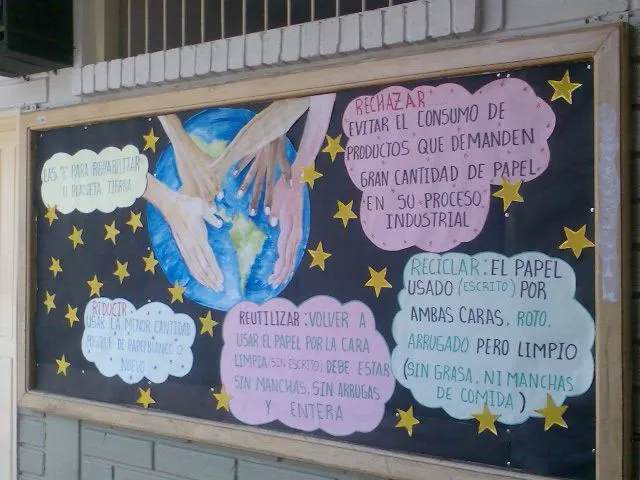 LAS "R" PARA REHABILITAR
EL PLANETA TIERRA
RECHAZAR
EVITAR EL CONSUMO DE
PRODUCTOS QUE DEMANDEN
GRAN CANTIDAD DE PAPEL
EN SU PROCESO
INDUSTRIAL
REDUCIR
USAR LA MENOR CANTIDAD
POSIBLE DE PAPEL BLANCO O
NUEVO
REUTILIZAR: VOLVER A
USAR EL PAPEL POR LA CARA
LIMPIA (SIN ESCRITO) DEBE ESTAR
SIN MANCHAS, SIN ARRUGAS
Y ENTERA
RECICLAR: EL PAPEL
USADO (ESCRITO) POR
AMBAS CARAS, ROTO,
ARRUGADO PERO LIMPIO
(SIN GRASA, NI MANCHAS
DE COMIDA)